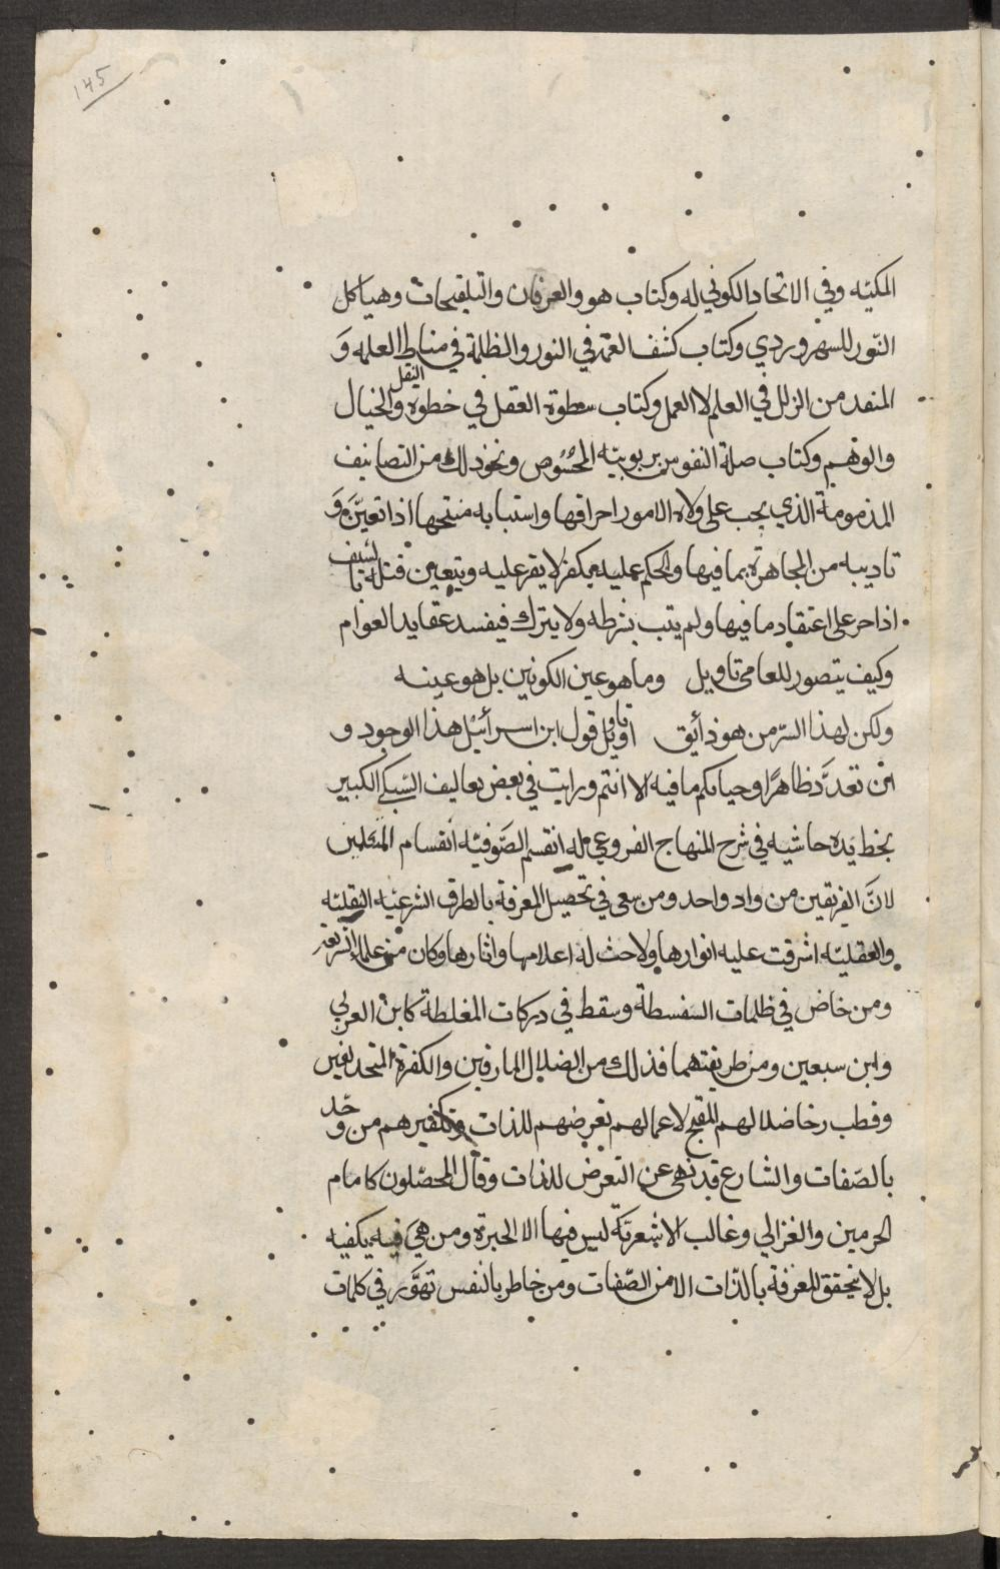 145
المكيه وفي الاتحاد الكوني له وكتاب هو والعرفان والتلقيحات وهياكل
النور للسهروردي وكتاب كشف الغمة في النور والظلمة في مناط العلمه و
المنقد من الزلل في العلم لا العمل وكتاب سطوة العقل في خطوة النقل والخيال
والوهم وكتاب صلة النفوس بربوبيته المحسوس ونحو ذلك من التصانيف
المذمومة الذي يجب على ولاه الامور احراقها واستبابه منتحها اذا تعين و
تاديبه من المجاهرة بما فيها والحكم عليه بكفر لا يقر عليه ويتعين قتله بالسيف
اذا حر على اعتقاد ما فيها ولم يتب بشرطه ولا يترك فيفسد عقايد العوام
وكيف يتصور للعامي تاويل وما هو عين الكونين بل هو عينه
ولكن لهذا السر من هو ذائق او تاويل قول ابن اسرائيل هذا الوجود و
ان تعدد ظاهرا وحياتكم ما فيه الا انتم ورايت في بعض تعاليف السبكي الكبير
بخط يده حاشيه في شرح المنهاج الفروعي له انقسم الصوفيه انقسام المتكلمين
لان الفريقين من واد واحد ومن سعى في تحصيل المعرفة بالطرق الشرعيه النقليه
والعقليه اشرقت عليه انوارها ولاحت له اعلامها واثارها وكان من علماء الشريعه
ومن خاض في ظلمات السفسطة وسقط في دركات المغلطة كابن العربي
وابن سبعين ومن طريقتهما فذلك من الضلال المارقين والكفرة المتحدلقين
وقطب رحا ضلالهم المقبح لاعمالهم تعرضهم للذات وتكفيرهم من وحد
بالصفات والشارع قد نهى عن التعرض للذات وقال المحصلون كامام
الحرمين والغزالي وغالب الاشعرية ليس فيها الا الحيرة ومن هي فيه يكفيه
بل لا تتحقق المعرفة بالذات الا من الصفات ومن خاطر بالنفس تهور في كلمات